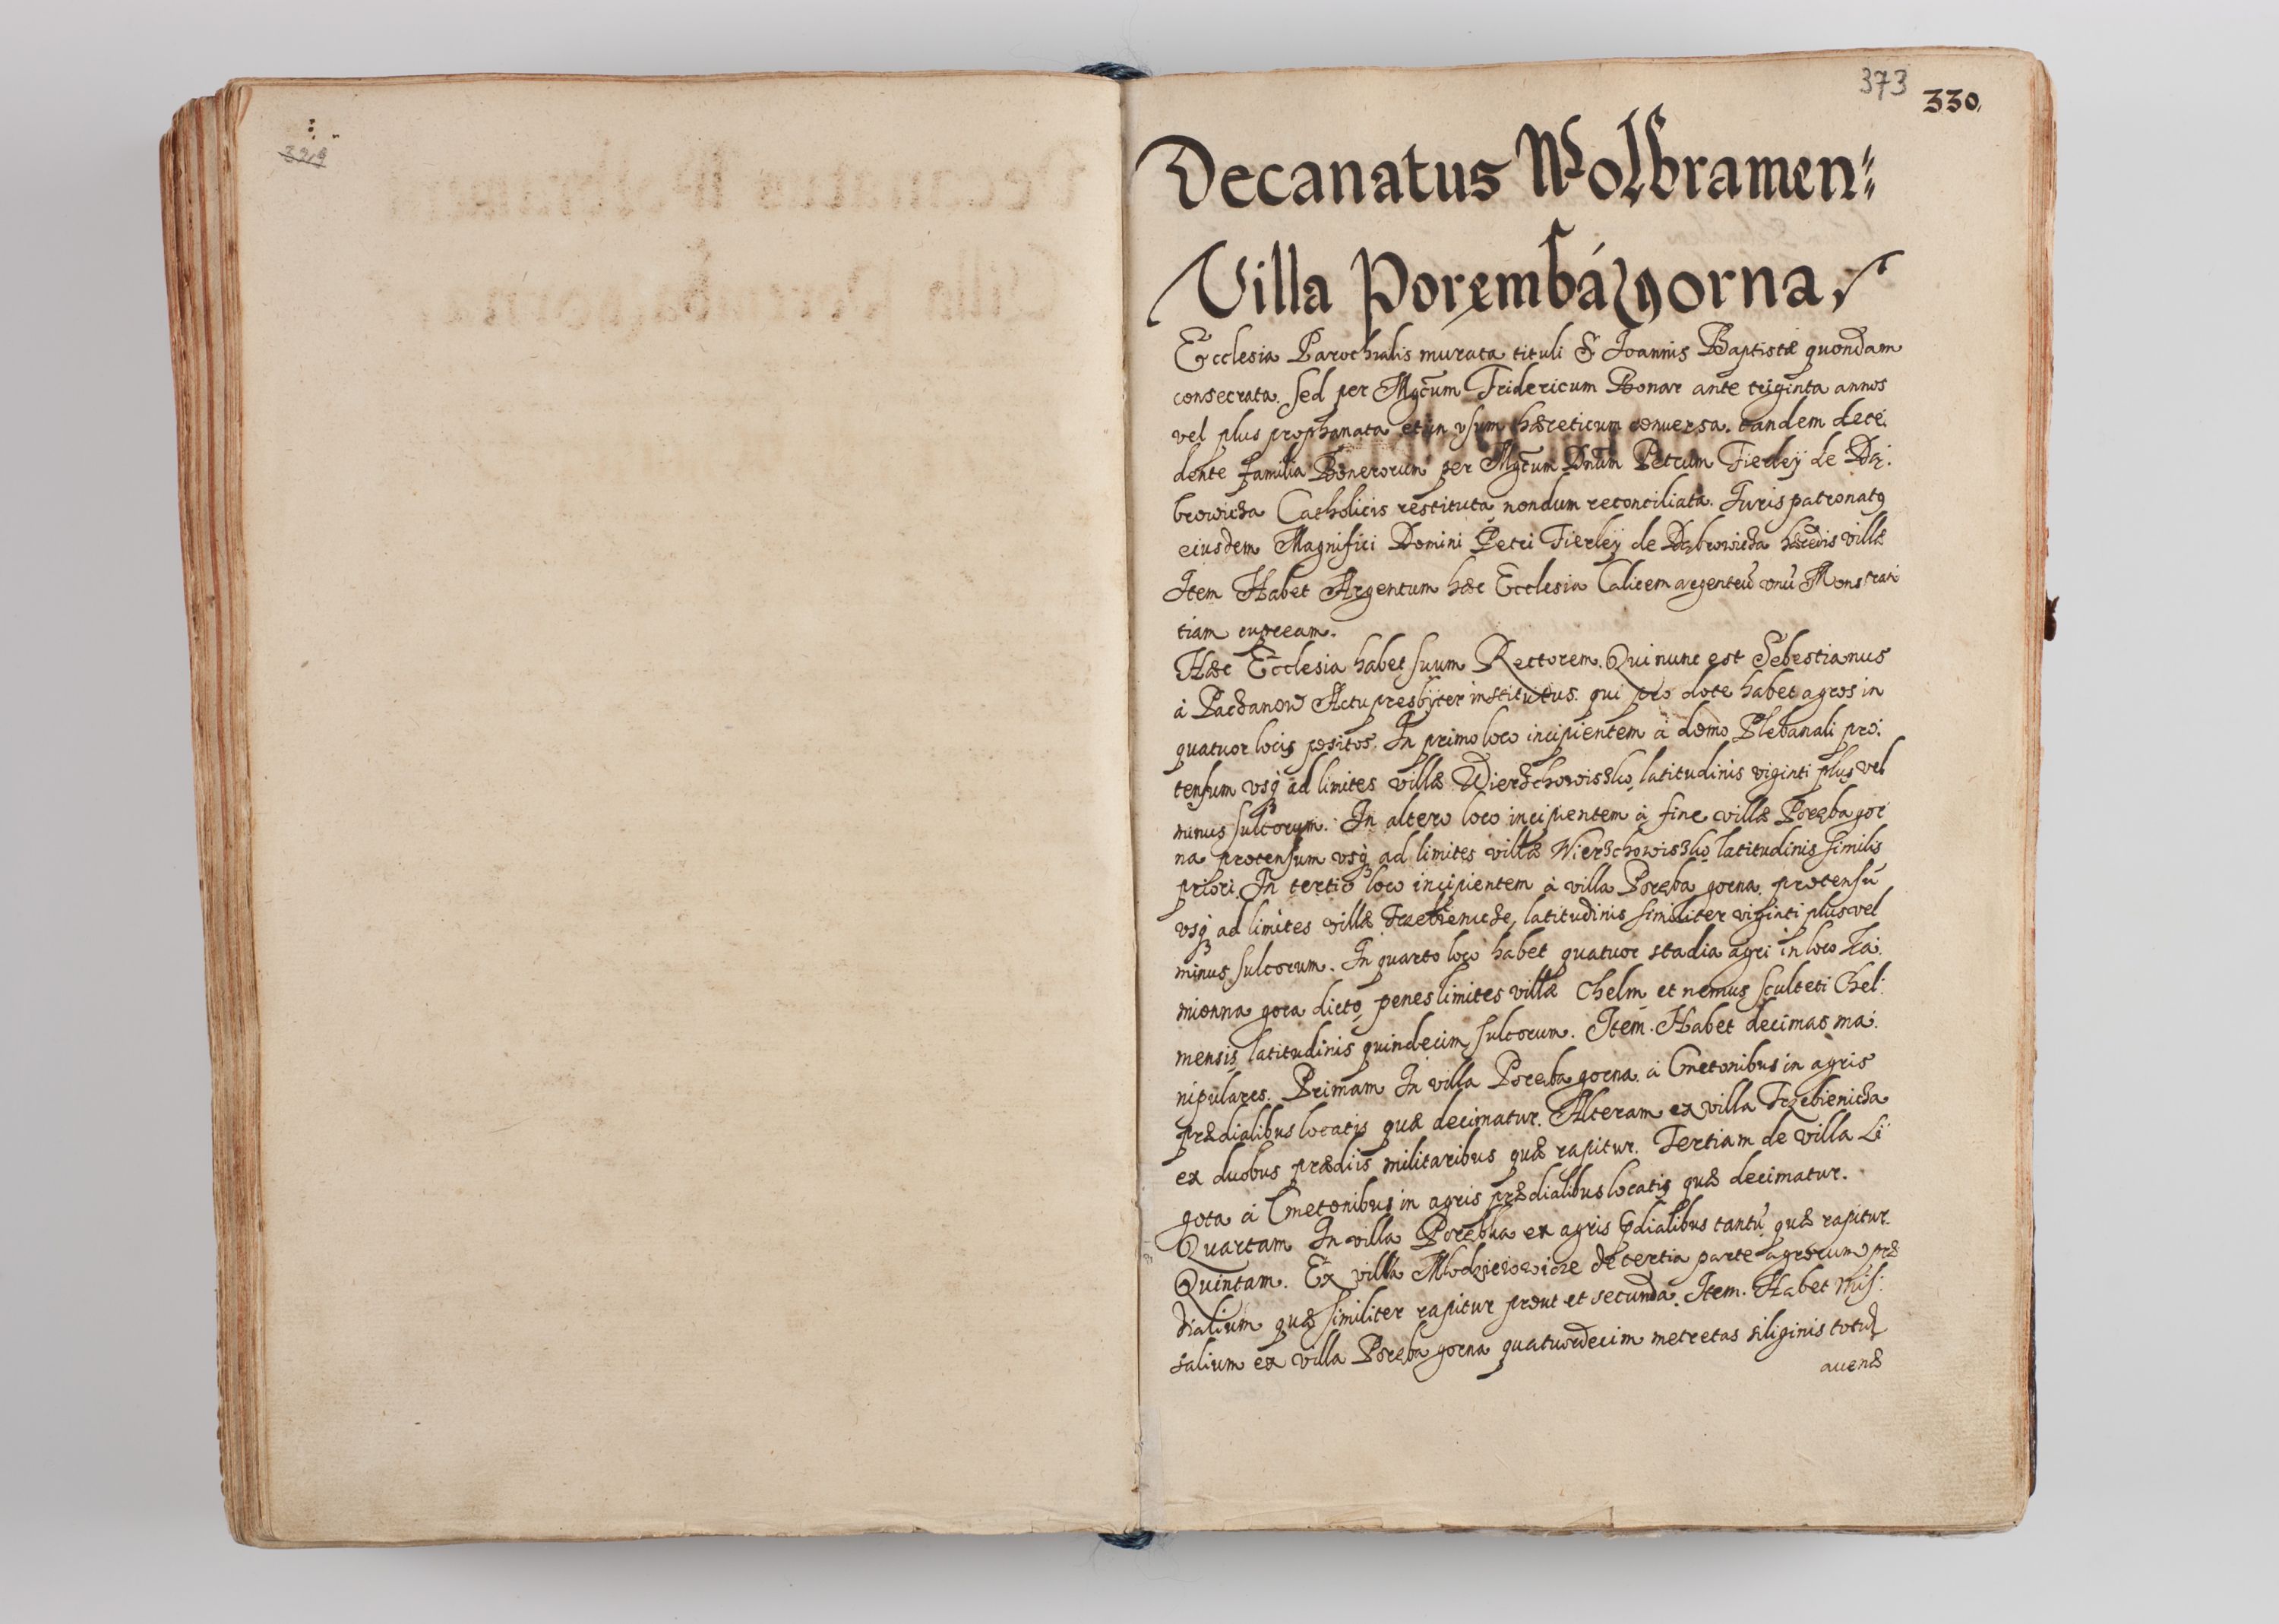 329
373
330.
Decanatus Wolbramen:
Villa Porembá gorna.
Ecclesia Parochialis murata tituli S. Joannis Baptistæ quondam
consecrata. Sed per Mgcum Fridericum Bonar ante triginta annos
vel plus prophanata et in vsum hæreticum conuersa. tandem dece:
dente familia Bonerorum per Mgcum Dnum Petrum Fierleÿ de Dą:
browicza Catholicis restituta nondum reconciliata. Juris patronatq
eiusdem Magnifici Domini Petri Fierleÿ de Dąbrowicza hæredis villæ
Item Habet Argentum hæc Ecclesia Calicem argenteū vnū Monstran
tiam cupream.
Hæc Ecclesia habet suum Rectorem. Qui nunc est Sebestianus
à Paczanow Actu presbÿter institutus. qui pro dote habet agros in
quatuor locis positos. In primo loco incipientem à domo Plebanali pro:
tensum vsq ad limites villæ Wierzchowisko, latitudinis viginti plus vel
minus sulcorum. In altero loco incipientem à fine villæ Poręba gor
na protensum vsq ad limites villæ Wierzchowisko latitudinis similis
priori. In tertio loco incipientem à villa Poręba gorna. protensū
vsq ad limites villæ Trzebienicze, latitudinis similiter viginti plus vel
minus sulcorum. In quarto loco habet quatuor stadia agri in loco Ka:
mionna gora dicto, penes limites villæ Chelm et nemus sculteti Chel:
mensis, latitudinis quindecim sulcorum. Item. Habet decimas ma:
nipulares. Primam In villa Poręba gorna. à Cmetonibus in agris
prædialibus locatis quæ decimatur. Alteram ex villa Trzebienicza
ex duobus prædiis militaribus quæ rapitur. Tertiam de villa Li
gota à Cmetonibus in agris prædialibus locatis quæ decimatur.
Quartam In villa Porębka ex agris pdialibus tantū quæ rapitur.
Quintam. Ex villa Mlodziejowicze de tertia parte agrorum præ
dialium quæ similiter rapitur prout et secunda. Item. Habet Mis:
salium ex villa Poręba gorna quatuordecim metretas siliginis totid
auenæ